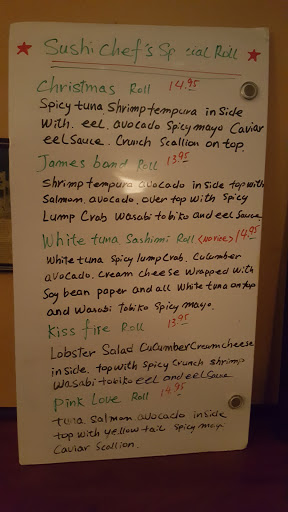 Sushi Chef's Sp cial Roll
Christmas Roll 14.95
Spicy tuna Shrimp tempura in side
with. eel. avocado Spicy mayo Caviar
eel Sauce. Crunch Scallion on top.
James band Roll 13.95
Shrimp tempura avocado in side top with
Salmon. avocado. over top with Spicy
Lump Crab Wasabi tobiko and eel Sauce
White tuna Sashimi Roll (no rice) 14.95
White tuna Spicy lump Crab. Cucumber
avocado. Cream cheese wrapped with
Soy bean paper and all White tuna on top
and Wasabi Tobiko Spicy mayo.
Kiss fire Roll 13.95
Lobster Salad Cucumber Cream cheese
in side. top with Spicy Crunch Shrimp
Wasabi tobiko eel and eel Sauce
Pink Love Roll 14.95
tuna Salmon avocado in side
top with yellow tail Spicy mayo
Caviar Scallion.